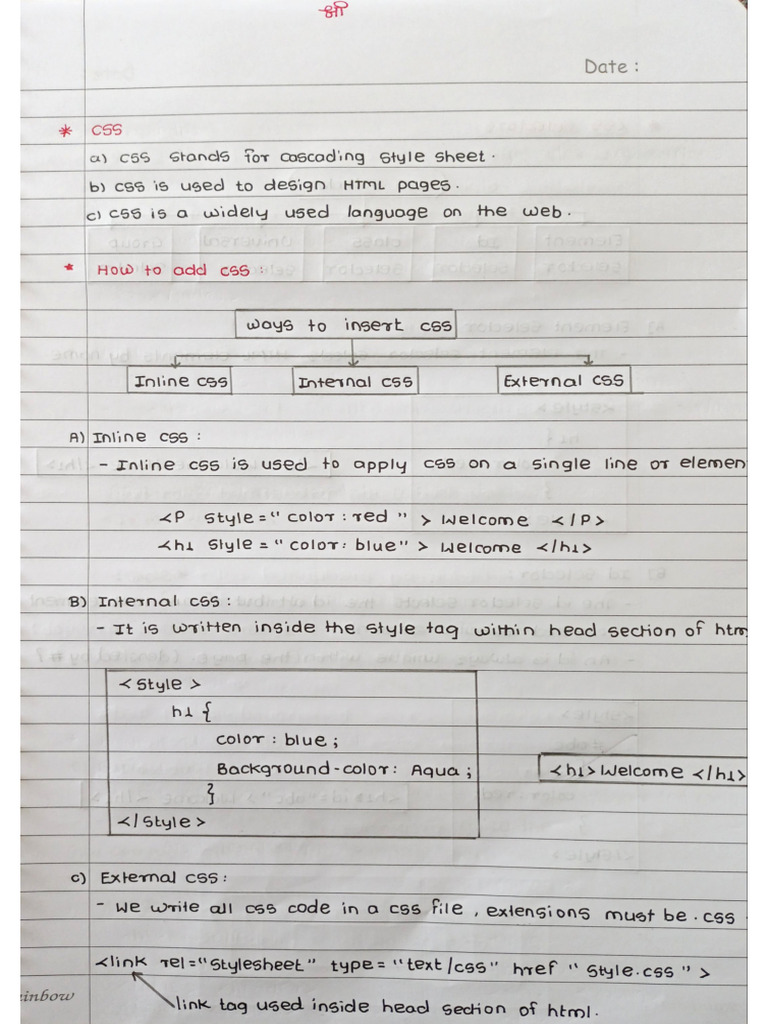 श्री
Date :
* CSS
a) CSS stands for cascading style sheet.
b) CSS is used to design HTML pages.
c) CSS is a widely used language on the web.
* How to add CSS :
ways to insert CSS
Inline CSS Internal CSS External CSS
A) Inline CSS :
- Inline CSS is used to apply CSS on a single line or elemen
<P style="color : red "> Welcome </P>
<h1 style = "color: blue"> Welcome </h1>
B) Internal CSS :
- It is written inside the style tag within head section of htm
<style>
h1 {
color : blue ;
Background-color: Aqua ;
<h1> Welcome </h1>
}
</style>
c) External CSS :
- We write all CSS code in a CSS file , extensions must be .css
<link rel="stylesheet" type = "text/css" href " style.css ">
inbow
link tag used inside head section of html.